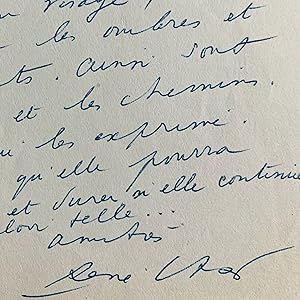 visage,
les ombres et
ts. Ainsi sont
et les chemins.
les exprime.
qu'elle pourra
et durer si elle continue
telle...
amitiés
René Char